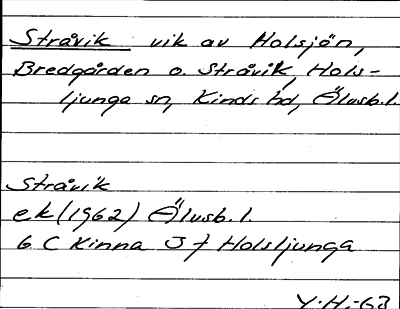 Stråvik vik av Holsjön,
Bredgården o. Stråvik, Hols-
ljunga sn, Kinds hd, Älvsb. l.
Stråvik
ek (1962) Älvsb. l.
6 C Kinna J f Holsljunga
Y.H.-63